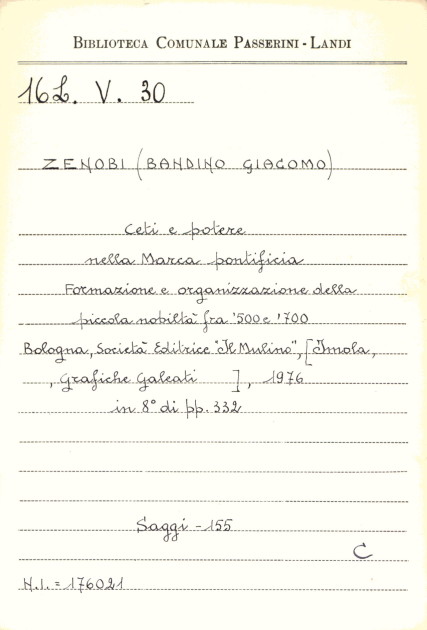 BIBLIOTECA COMUNALE PASSERINI - LANDI
16L. V. 30
ZENOBI (BANDINO GIACOMO)
Ceti e potere
nella Marca pontificia
Formazione e organizzazione della
piccola nobiltà fra '500 e '700
Bologna, Società Editrice "Il Mulino", [Imola,
, Grafiche Galeati ], 1976
in 8° di pp. 332
Saggi - 155
C
N.I. = 176021